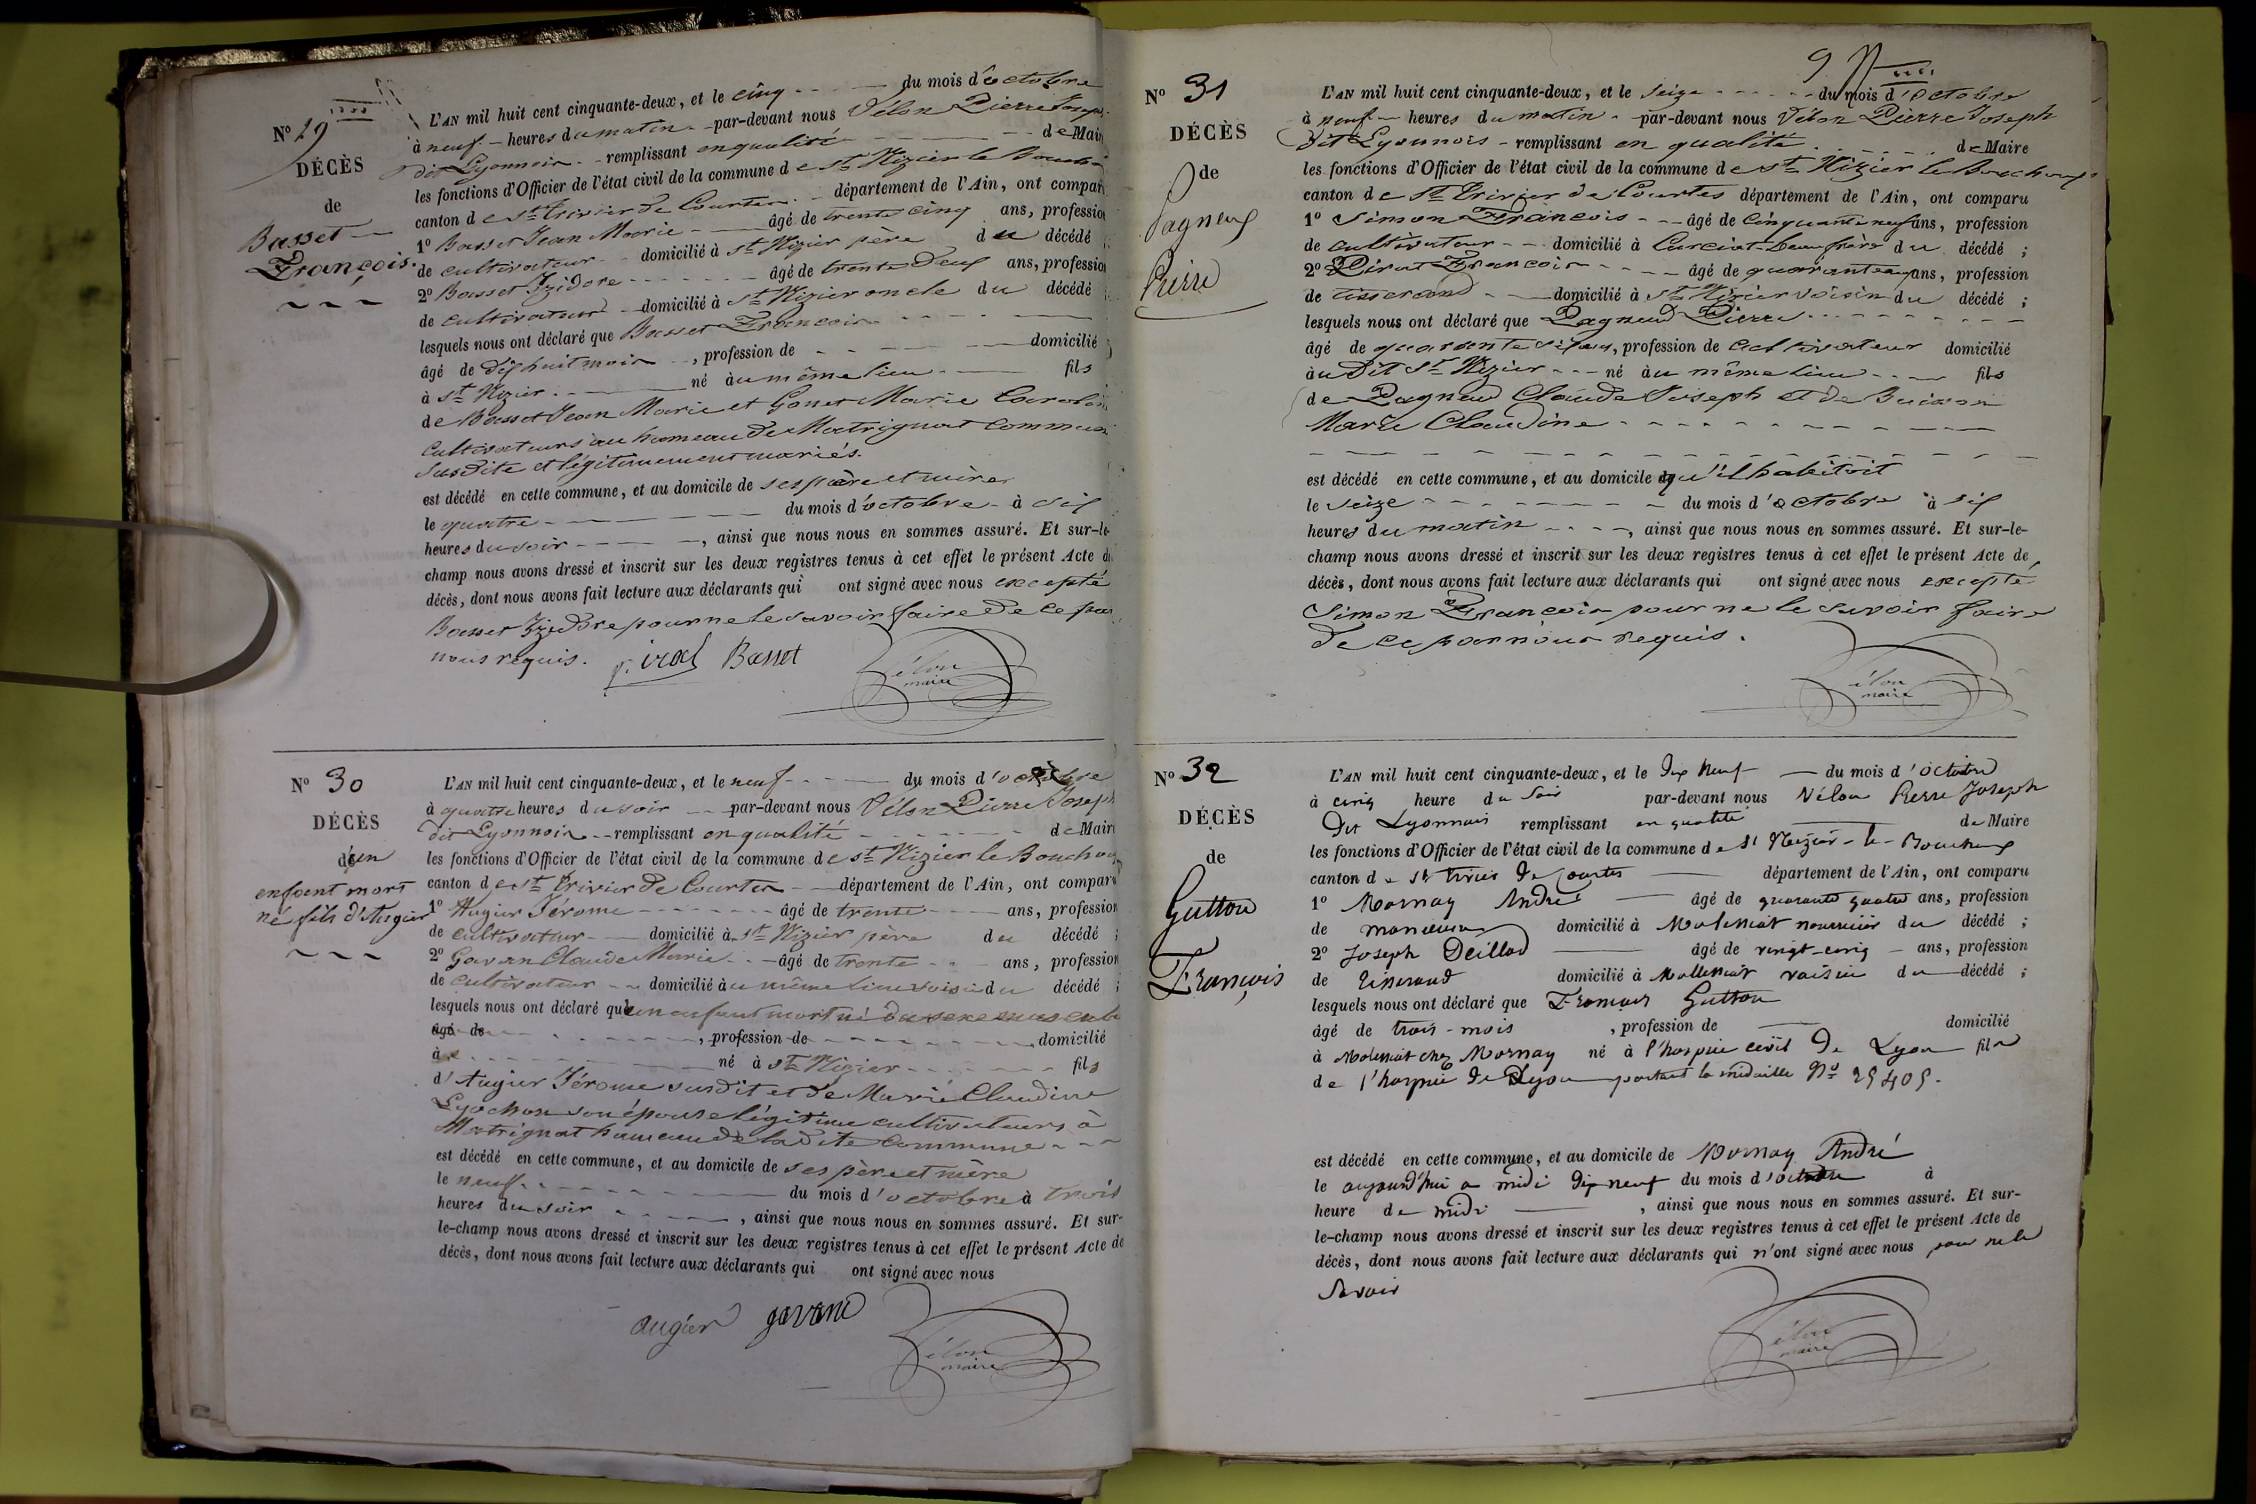 N° 29
DÉCÈS
de
Basset
François.
L'AN mil huit cent cinquante-deux, et le cinq du mois d'octobre
à neuf heures du matin par-devant nous Vélon Pierre Joseph
dit Lyonnois remplissant en qualité de Maire
les fonctions d'Officier de l'état civil de la commune de St Nizier le Bouch
canton de St Trivier de Courtes département de l'Ain, ont compar
1° Basset Jean Marie âgé de trente cinq ans, profession
de cultivateur domicilié à St Nizier père du décédé ;
2° Basset Izidore âgé de trente deux ans, profession
de cultivateur domicilié à St Nizier oncle du décédé ;
lesquels nous ont déclaré que Basset François
âgé de dix huit mois, profession de domicilié
à St Nizier né au même lieu fils
de Basset Jean Marie et Marie
cultivateurs au hameau de Matrignat commune
susdite et légitimement mariés.
est décédé en cette commune, et au domicile de ses père et mère
le quatre du mois d'octobre à six
heures du soir, ainsi que nous nous en sommes assuré. Et sur-le-
champ nous avons dressé et inscrit sur les deux registres tenus à cet effet le présent Acte de
décès, dont nous avons fait lecture aux déclarants qui ont signé avec nous excepté
Basset Izidore pour ne le savoir faire de ce par
nous requis.
Basset
élon
maire
N° 30
DÉCÈS
d'un
enfant mort
né fils d'Augier
L'AN mil huit cent cinquante-deux, et le neuf du mois d'octobre
à quatre heures du soir par-devant nous Vélon Pierre Joseph
dit Lyonnois remplissant en qualité de Maire
les fonctions d'Officier de l'état civil de la commune de St Nizier le Bouchoux
canton de St Trivier de Courtes département de l'Ain, ont comparu
1° Augier Jérome âgé de trente ans, profession
de cultivateur domicilié à St Nizier père du décédé ;
2° Gavan Claude Marie âgé de trente ans, profession
de cultivateur domicilié au même lieu voisin du décédé ;
lesquels nous ont déclaré qu'un enfant mort né du sexe masculin
âgé de, profession de domicilié
à né à St Nizier fils
d'Augier Jérome susdit et de Marie Claudine
Lyochon son épouse légitime cultivateurs à
Matrignat hameau de la dite commune
est décédé en cette commune, et au domicile de ses père et mère
le neuf du mois d'octobre à trois
heures du soir, ainsi que nous nous en sommes assuré. Et sur-
le-champ nous avons dressé et inscrit sur les deux registres tenus à cet effet le présent Acte de
décès, dont nous avons fait lecture aux déclarants qui ont signé avec nous
augier gavand
élon
maire
9
N° 31
DÉCÈS
de
Pagneux
Pierre
L'AN mil huit cent cinquante-deux, et le seize du mois d'octobre
à neuf heures du matin par-devant nous Vélon Pierre Joseph
dit Lyonnois remplissant en qualité de Maire
les fonctions d'Officier de l'état civil de la commune de St Nizier le Bouchoux
canton de St Trivier de Courtes département de l'Ain, ont comparu
1° Simon François âgé de cinquante neuf ans, profession
de cultivateur domicilié à Curciat beau frère du décédé ;
2° Pirat François âgé de quarante ans, profession
de tisserand domicilié à St Nizier voisin du décédé ;
lesquels nous ont déclaré que Pagneux Pierre
âgé de quarante six ans, profession de cultivateur domicilié
au dit St Nizier né au même lieu fils
de Pagneux Claude Joseph et de Buisson
Marie Claudine
est décédé en cette commune, et au domicile qu'il habitoit
le seize du mois d'octobre à six
heures du matin, ainsi que nous nous en sommes assuré. Et sur-le-
champ nous avons dressé et inscrit sur les deux registres tenus à cet effet le présent Acte de
décès, dont nous avons fait lecture aux déclarants qui ont signé avec nous excepté
Simon François pour ne le savoir faire
de ce par nous requis.
élon
maire
N° 32
DÉCÈS
de
Gutton
François
L'AN mil huit cent cinquante-deux, et le dix neuf du mois d'octobre
à cinq heure du soir par-devant nous Vélon Pierre Joseph
dit Lyonnais remplissant en qualité de Maire
les fonctions d'Officier de l'état civil de la commune de St Nizier-le-Bouchoux
canton de St Trivier de Courtes département de l'Ain, ont comparu
1° Mornay André âgé de quarante quatre ans, profession
de domicilié à Molessiat nourricier du décédé ;
2° Joseph Deillod âgé de vingt-cinq ans, profession
de Tisserand domicilié à Mollessiat voisin du décédé ;
lesquels nous ont déclaré que François Gutton
âgé de trois-mois, profession de domicilié
à Molessiat chez Mornay né à l'hospice civil de Lyon fils
de l'hospice de Lyon portant la médaille N° 25405.
est décédé en cette commune, et au domicile de Mornay André
le aujourd'hui a midi dix neuf du mois d'octobre à
heure de midi, ainsi que nous nous en sommes assuré. Et sur-
le-champ nous avons dressé et inscrit sur les deux registres tenus à cet effet le présent Acte de
décès, dont nous avons fait lecture aux déclarants qui n'ont signé avec nous pour ne le
savoir
élon
maire